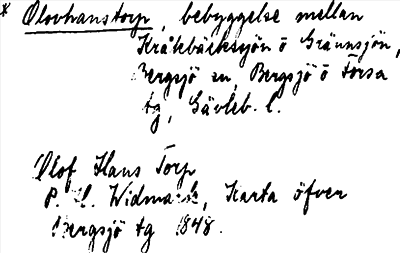 * Olovhanstorp, bebyggelse mellan
Kråkbäckssjön o Grännsjön,
Bergsjö sn, Bergsjö o Forsa
tg, Gävleb. l.
Olof Hans Torp
P. H. Widmark, Karta öfver
Bergsjö tg 1848.